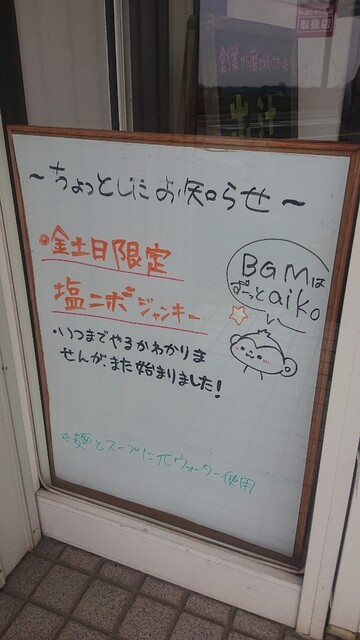 ～ちょっとしたお知らせ～
金土日限定
塩ニボジャンキー
・いつまでやるかわかりま
せんが、また始まりました！
BGMは
ずーっとaiko
麺とスープにπウォーター使用
取扱店